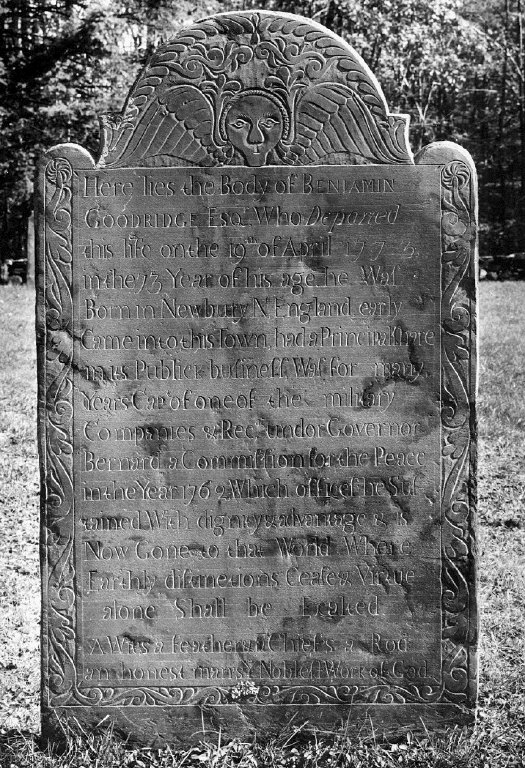 Here lies the Body of BENJAMIN
GOODRIDGE Esqr. Who Departed
this life on the 19th of April 1775,
in the 73 Year of his age he Waſ
Born in Newbury N England, early
Came into this Town, had a Principal ſhare
in its Publick buſineſſ Waſ for many
Years Capt of one of the military
Companies & Recd. under Governor
Bernard a Commiſſion for the Peace
in the Year 176 Which office he Suſ
tained With dignity & advantage & is
Now Gone to that World Where
Earthly diſtinctions Ceaſe & Virtue
alone Shall be
A Wits a feather a Chief's a Rod
an honest man's Nobleſſ Work of God